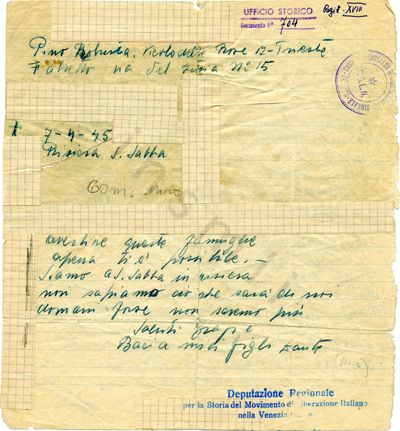 UFFICIO STORICO
Documento N° 704
Pagt. XVIII
Pino Robusta, Vicolo delle Rose 12 - Trieste
Fabretto via del 15
7-4-45
Risiera S. Sabba
C.L.N.
avertire queste famiglie
apena ti è possibile. -
Siamo a S. Sabba in risiera
non sapiamo ciò che sarà di noi
domani forse non saremo più
Saluti grazie
Baci a miei figli
Deputazione Regionale
per la Storia del Movimento di Liberazione Italiano
nella Venezia